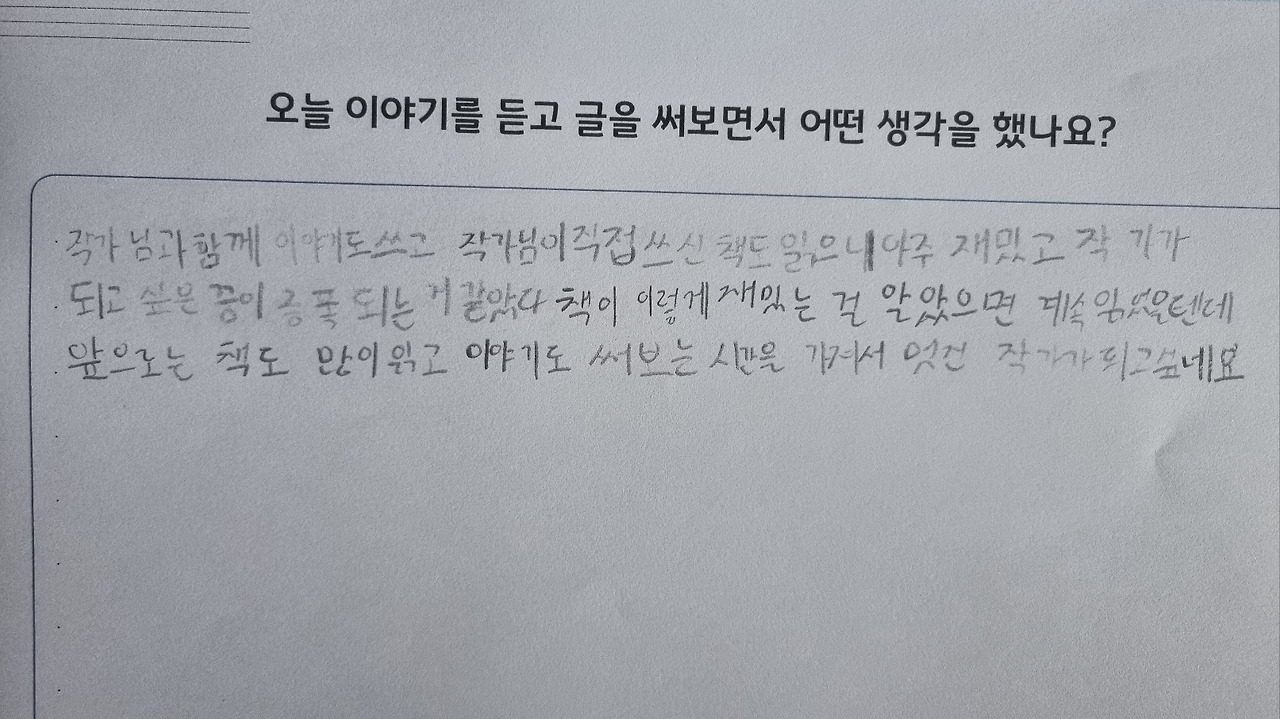 오늘 이야기를 듣고 글을 써보면서 어떤 생각을 했나요?
작가님과 함께 이야기도 쓰고 작가님이 직접 쓰신 책도 읽으니 아주 재밌고 작가가
되고 싶은 꿈이 증폭 되는 거 같았다 책이 이렇게 재밌는 걸 알았으면 계속 읽었을텐데
앞으로는 책도 많이 읽고 이야기도 써보는 시간을 가져서 멋진 작가가 되고싶네요